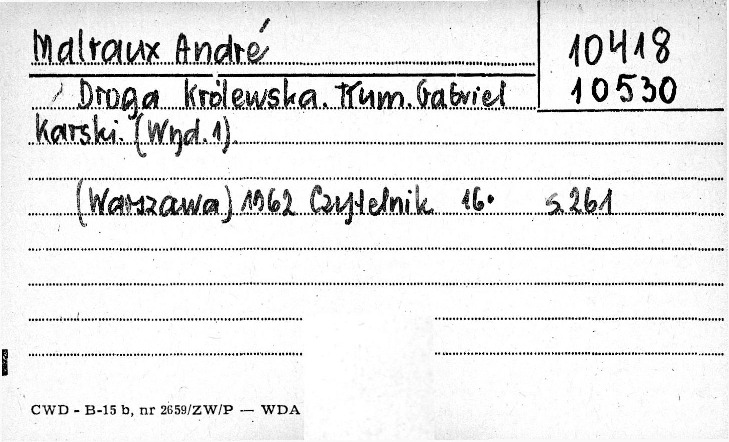 Malraux André
10418
10530
Droga Królewska. Tłum. Gabriel
Karski. (Wyd. 1).
(Warszawa) 1962 Czytelnik 16° s. 261
CWD - B-15 b, nr 2659/ZW/P — WDA